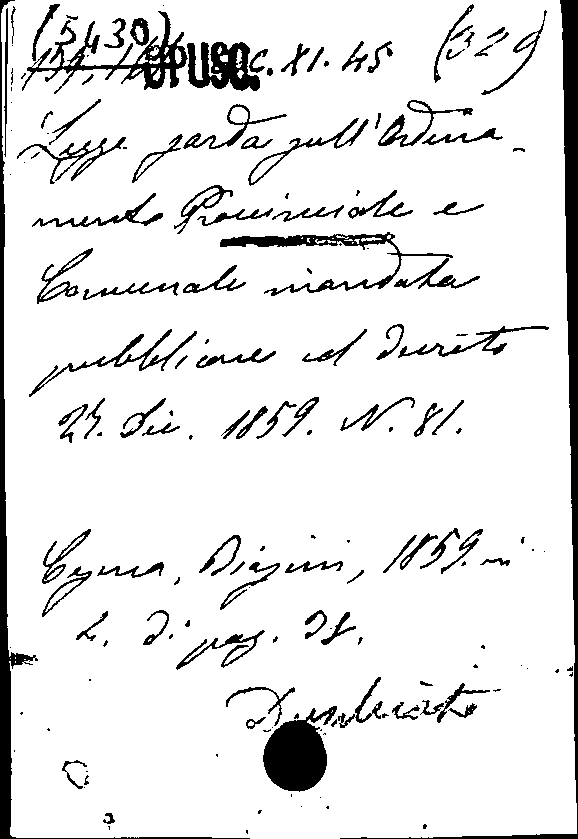 (5430)
OPUSC. C. XI. 45 (329)
Legge sarda sull'Ordina-
mento Provinciale e
Comunale mandata
pubblicare col decreto
27. Dic. 1859. N. 81.
Cesena, Biasini, 1859. in
di pag. 38.
Duplicato